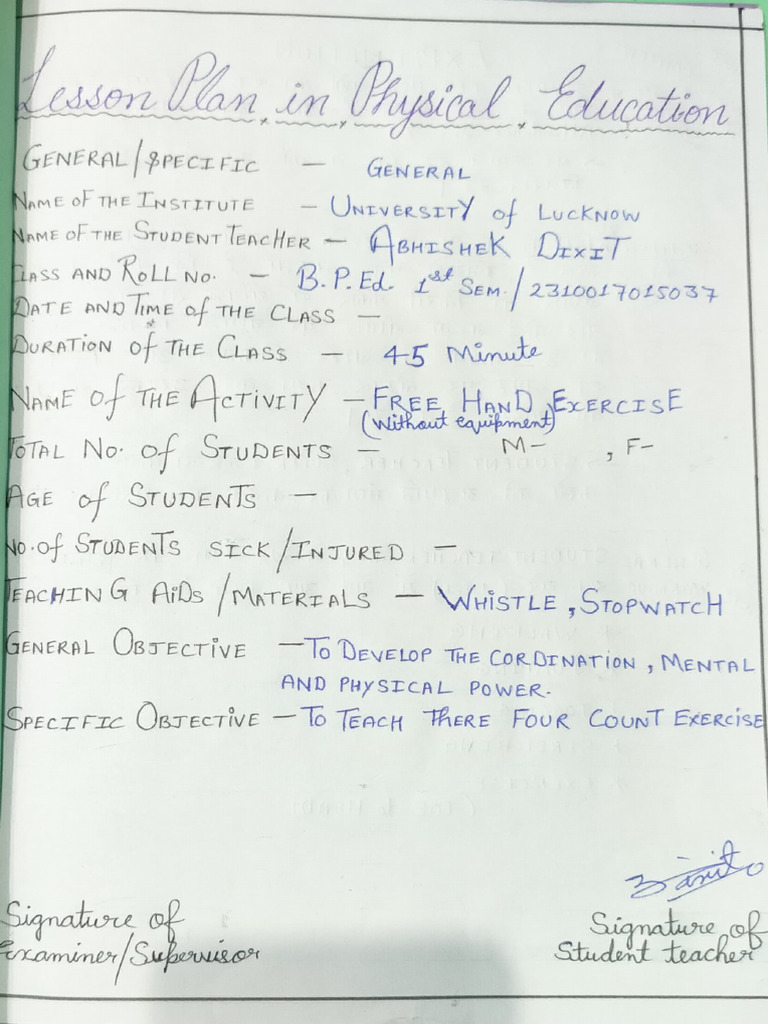 Lesson Plan in Physical Education
GENERAL/SPECIFIC — GENERAL
NAME OF THE INSTITUTE — UNIVERSITY of LUCKNOW
NAME OF THE STUDENT TEACHER — ABHISHEK DIXIT
CLASS AND ROLL NO. — B.P.Ed. 1st SEM./2310017015037
DATE AND TIME of THE CLASS —
DURATION of THE CLASS — 45 Minute
NAME OF THE ACTIVITY — FREE HAND EXERCISE
(Without equipment)
TOTAL NO. of STUDENTS — M- , F-
AGE of STUDENTS —
NO. of STUDENTS SICK/INJURED —
TEACHING AiDS/MATERIALS — WHISTLE, STOPWATCH
GENERAL OBJECTIVE — TO DEVELOP THE CORDINATION, MENTAL
AND PHYSICAL POWER.
SPECIFIC OBJECTIVE — TO TEACH THERE FOUR COUNT EXERCISE
Signature of
Examiner/Supervisor
Signature of
Student teacher